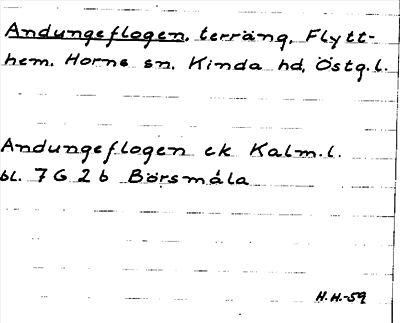 Andungeflogen, terräng, Flytt-
hem, Horns sn, Kinda hd, Östg.l.
Andungeflogen ek Kalm.l.
bl. 7 G 2 b Börsmåla
H.H.-59